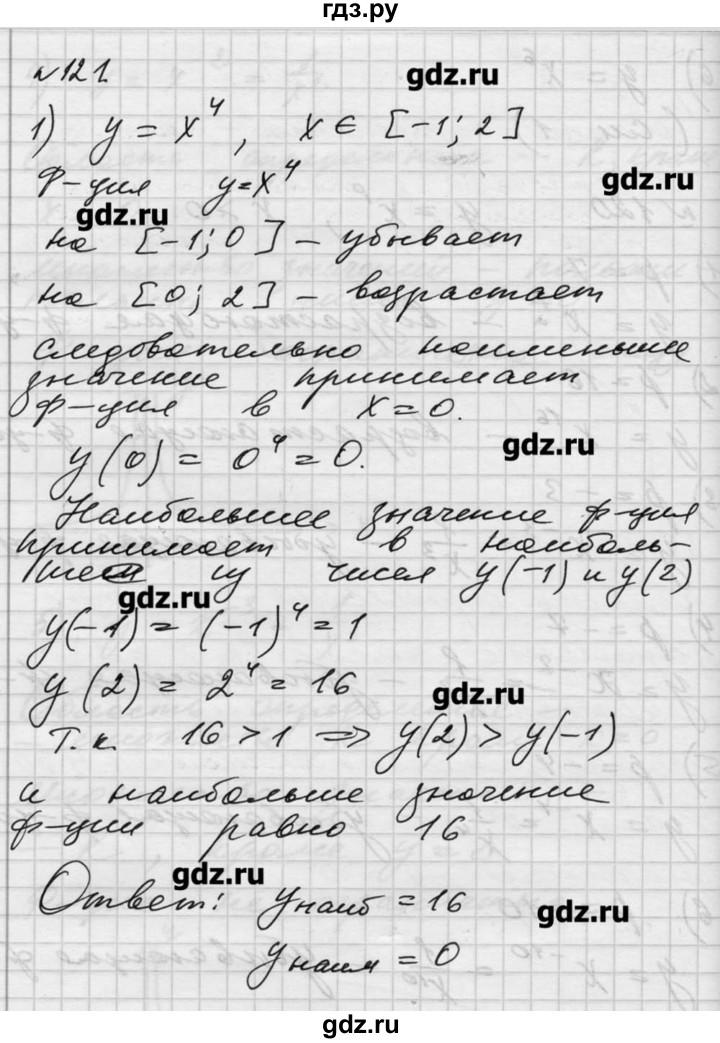 гдз.ру
№121
gdz.ru
1) y = x⁴, x ∈ [-1; 2]
ф-ция y=x⁴
gdz.ru
gdz.ru
на [-1; 0] – убывает
на [0; 2] – возрастает
следовательно наименьше
значение принимает
ф-ция в x=0.
gdz.ru
y(0) = 0⁴ = 0.
Наибольшее значение ф-ция
принимает в наиболь-
шем из чисел y(-1) и y(2)
gdz.ru
y(-1) = (-1)⁴ = 1
y(2) = 2⁴ = 16
gdz.ru
т.к. 16 > 1 ⇒ y(2) > y(-1)
и наибольше значение
ф-ции равно 16
gdz.ru
Ответ: y наиб = 16
gdz.ru
y наим = 0
gdz.ru